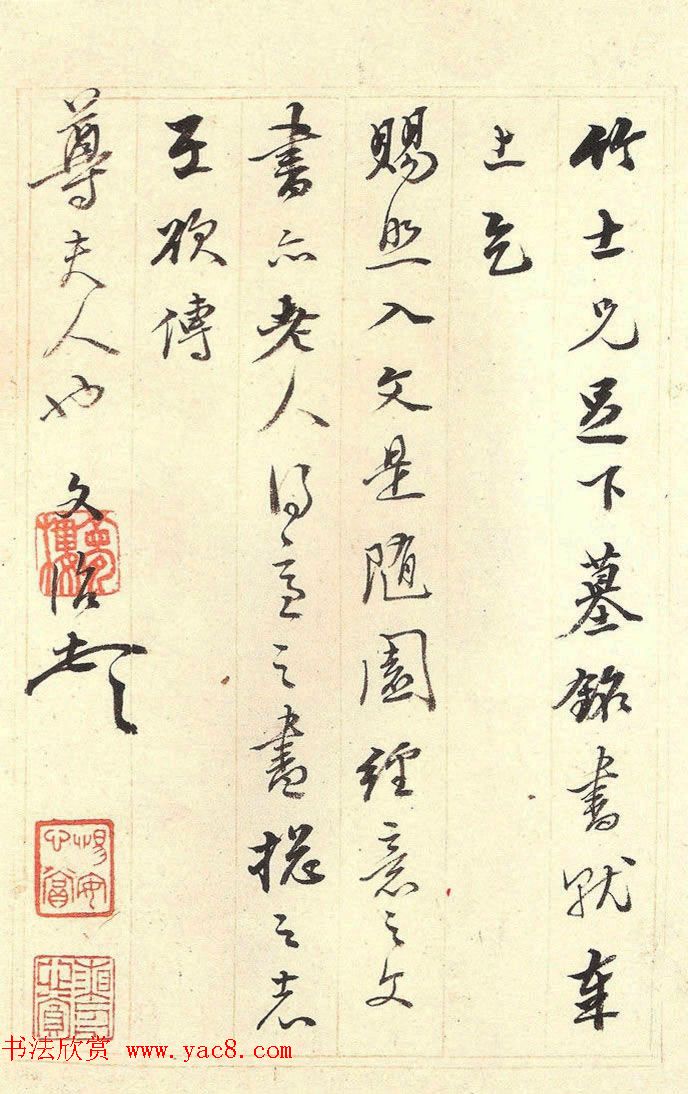 竹士兄足下墓銘書就奉
上乞
賜照入文是随園經意之文
書亦老人得意之書總之志
在欲傳
尊夫人也 文治頓
书法欣赏 www.yac8.com